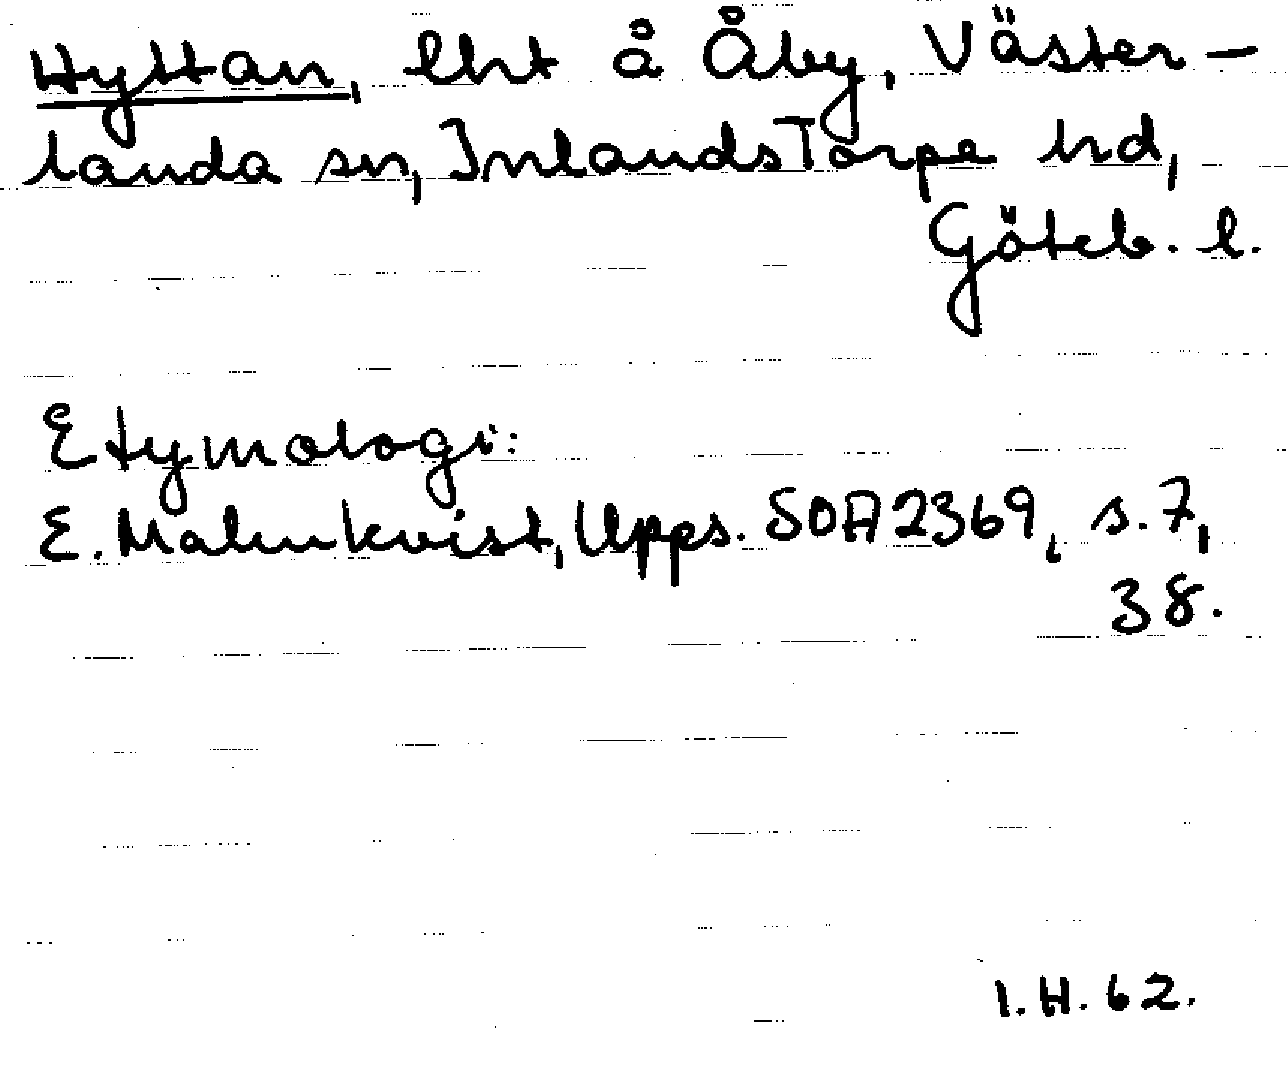 Hyttan, lht å Åby, Väster-
landa sn, Inlands Torpe hd,
Göteb. l.
Etymologi:
E. Malmkvist, Upps. SOA 2369, s. 7,
38.
I.H. 62.